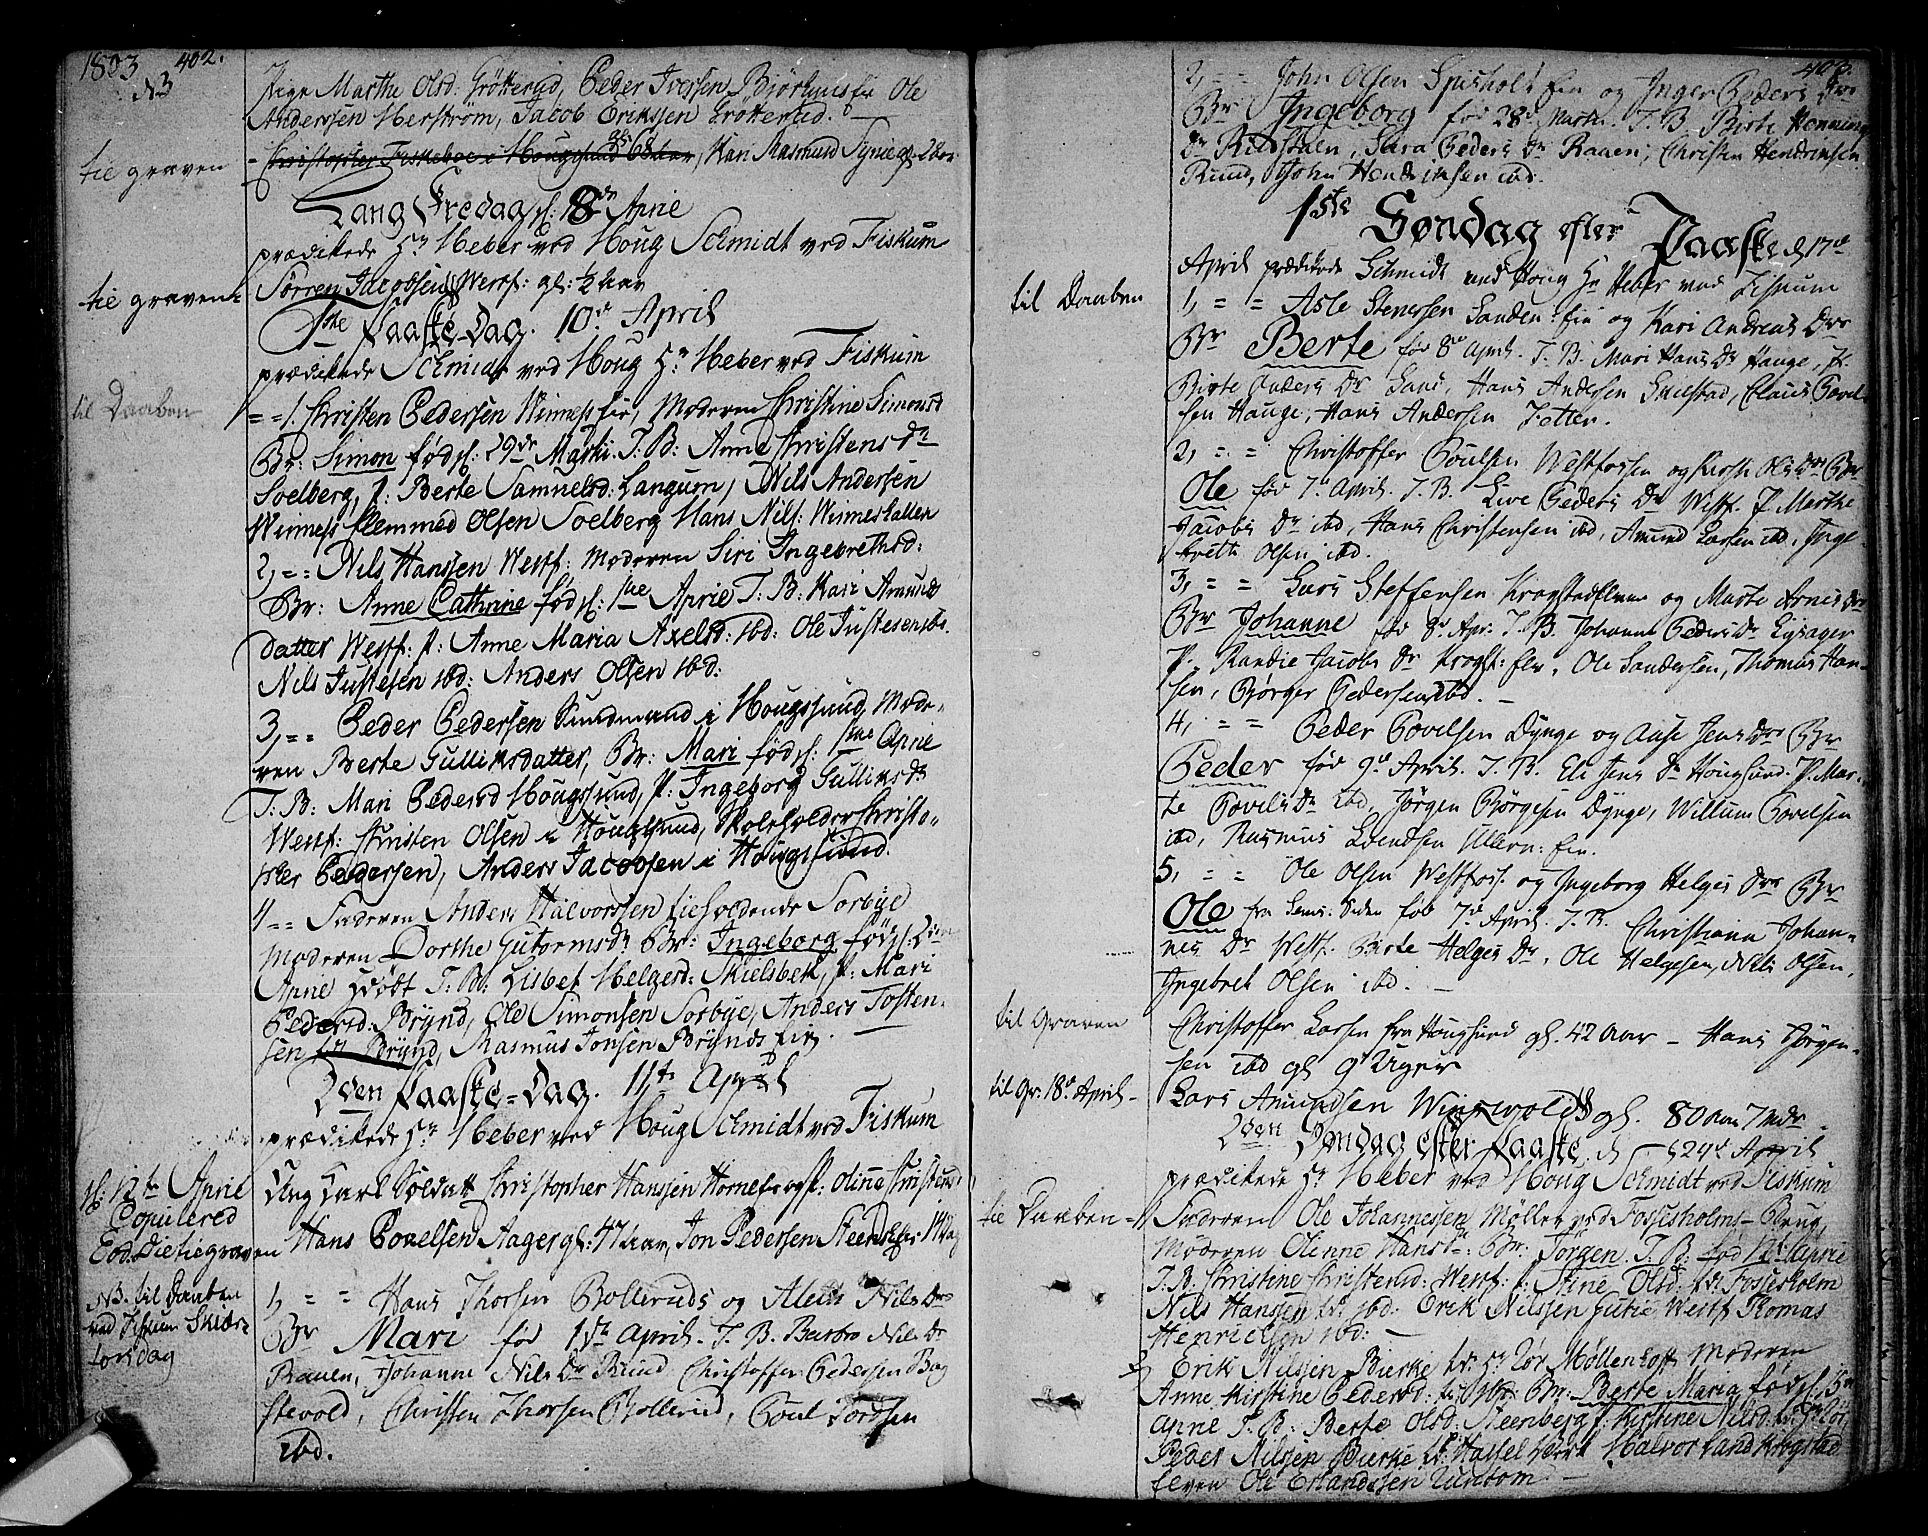 1803 402.
N3
Pige Marthe Olsd: Grötterud, Peder Ivessen Björhuus Ole
Anderssen Herström, Jacob Erikssen Grötterud.
til graven
Christopher Fiskeboe i Hougsund 68 aar, Kari Rasmusd
Lang Fredag d: 8de April
prædikede Hr Heber ved Houg Schmidt ved Fiskum
til graven
Sörren Jacobsen Westf: gl: ½ aar
1ste Paaske-Dag. 10d April
prædikede Schmidt ved Houg Hr Heber ved Fiskum
til Daaben
1. Christen Pedersen Winness Moderen Christine Simonsd
Br: Simon föd d: 29de Martii. T. B: Anne Christensdr
Soelberg, P: Berte Samuelsd: Langum, Nils Andersen
Winness Clemmed Olsen Soelberg Hans Nils: Winneshallen
2, = = Nils Hanssen Westf: Moderen Siri Ingebrethsd:
Br: Anne Cathrine föd d: 1ste April T. B: Kari Amunds
datter Westf: P: Anne Maria Axelsd: ibd: Ole Justesen ibd.
Nils Justesen ibd: Anders Olsen ibd:
3, = = Peder Pedersen Sundmand i Hougssund, Mode-
ren Berte Gulliksdatter, Br: Mari föd d: 1ste April
T. B: Mari Pedersd Hougssund, P: Ingeborg Gulliksdr
Westf: Christen Olsen i Hougssund, Skoleholder Christo-
pher Pedersen, Anders Jacobsen i Hougssund.
4 = = Faderen Anders Halvorssen tilholdende Sorbye
Moderen Dorthe Gutormsdr Br: Ingeborg föd d: 2den
April döbt T. B: Lisbet Helgesd: Skielsbek, P: Mari
Pedersd: Brynd, Ole Simonsen Sorbye, Anders Tosten-
sen Brynd, Rasmus Jonsen Brynds
2den Paaske-Dag. 11te April
prædikede Hr Heber ved Houg Schmidt ved Fiskum
d: 12te April
Copulered
Ung Karl Soldat Christopher Hanssen Horne og P: Oline Christensd.
Eod: Die til graven
Hans Povelsen Aager gl: 47 aar, Jon Pedersen Steen
NB. til Daaben
ved Fiskum Skiær-
torsdag
1, = = Hans Thorsen Bolleruds og Aleth Nils Drs
Br Mari föd 1ste April. T. B. Barbro Nils Dr
Raaen, Johanne Nils Dr Ruud Christoffer Pedersen Bag
stevold, Christen Thorsen Bollerud, Poul Tordsen
ibd.
403.
2, = = John Olsen Spisholt og Inger Peders Drs
Br Ingeborg föd 28d Martii. T. B Berte Hennings
Dr Rudstaen, Sara Peders Dr Raaen, Christen Hendrichsen
Ruud, John Hendrichsen ibd.
1ste Søndag efter Paaske d 17d
April prædikede Schmidt ved Houg Hr Heber ved Fiskum
til Daaben
1, = = Asle Stenersen Sanden og Kari Andreas Drs
Br Berte föd 8d April. T. B. Mari Hans Dr Hauge, P.
Birte Anders Dr Sand, Hans Andersen Smestad, Claus Povel-
sen Hauge, Hans Andersen Fetten.
2, = = Christoffer Poulsen Westfossen og Kirsti Ols Drs Br
Ole föd 7d April. T. B. Live Peders Dr Westf. P. Marthe
Jacobs Dr ibd, Hans Christensen ibd, Amund Larsen ibd, Inge
breth Olsen ibd.
3, = = Lars Steffensen Krogstadelven og Marte Arnes Drs
Br Johanne föd 8d Apr: T. B. Johanne Peders Dr Egsager
P. Randie Jacobs Dr Krogst: elv. Ole Sandersen, Thomas Han-
sen, Börger Pedersen ibd.
4, = = Peder Povelsen Dynge og Aase Jens Drs Br
Peder föd 9d April. T. B. Eli Jens Dr Hougsund. P. Mar-
te Povels Dr ibd, Jörgen Börgesen Dynge, Willum Povelsen
ibd, Rasmus Svendsen Ullern: ein.
5, = = Ole Olsen Westfoss. og Ingeborg Helges Drs Br
Ole fra Sems: Siden föd 7d April. T. B. Christiana Johan-
nes Dr Westf. Birte Helges Dr, Ole Helgesen, Nils Olsen,
Ingebret Olsen ibd.
til Graven
Christoffer Larsen fra Hougsund gl. 42 Aar - Hans Jörgen-
sen ibd gl 9 Uger
til Gr: 18d April -
Lars Amundsen Wingevolds gl. 80 aar 7 Mdr.
2den Søndag efter Paaske, d 24d April
prædikede Hr Heber ved Houg Schmidt ved Fiskum
til Daaben
Faderen Ole Johannessen Möller ved Fossesholms-Brug,
Moderen Olinne Hansdr: Br: Jörgen. T. B: föd 12te April
T. B. Christine Christensd: Westf: P. Stine Olsd: fr: Fossesholm
Nils Hansen fr: ibd: Erik Nilssen Gutie Westf Thomas
Henrichsen ibd: -
2, Erik Nilsen Bierke fr: Hr Lör Möllenhoff Moderen
Anne Kirstine Pedersd: Br: Berte Maria, föd d: 5te
April T. B: Berte Olsd: Steenberg P: Kirstine Nilsd:
Peder Nilssen Bierke fr: Hassel Værk Halvor Krogstad-
elven Ole Erlandssen Tuntom -